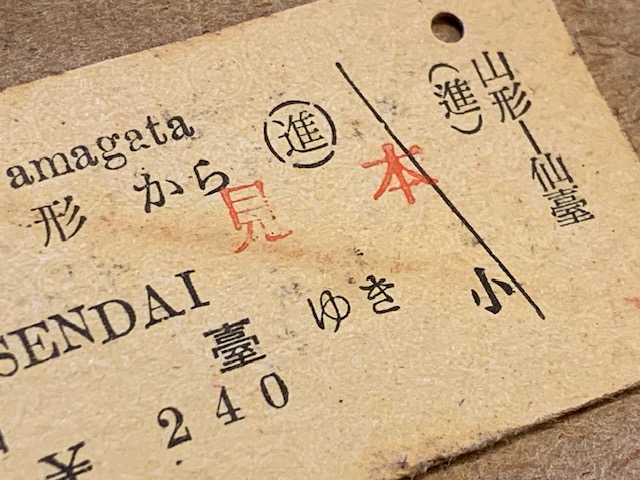 amagata
形 から (進)
見本
SENDAI
臺 ゆき 小
¥ 240
山形―仙臺
(進)